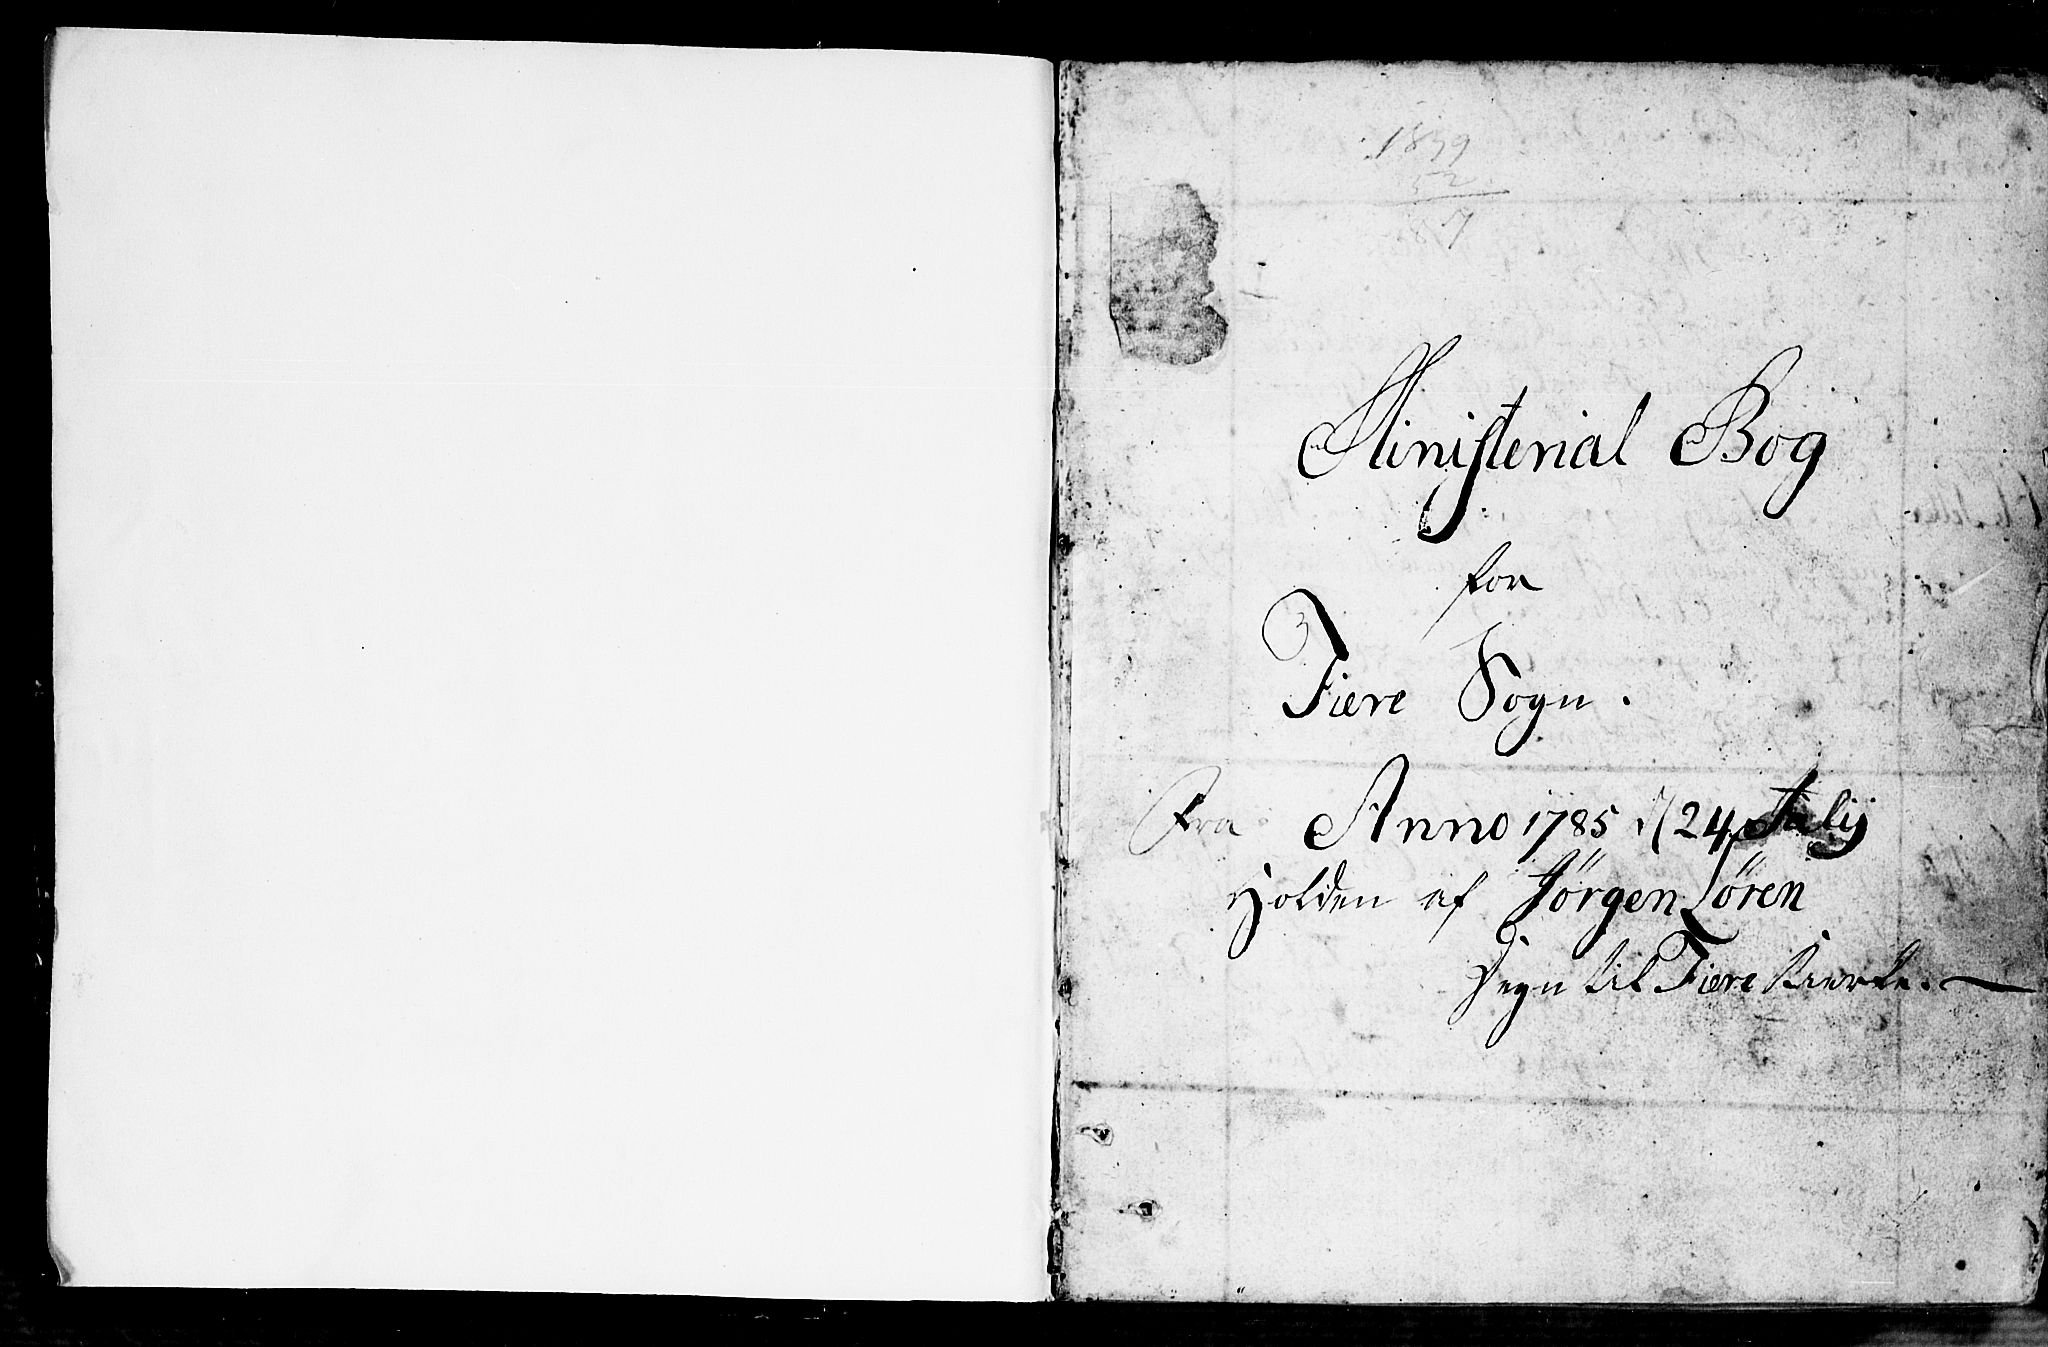 1839
52
87
Ministerial Bog
for
Fiere Sogn.
Fra Anno 1785 d 24 Julij
Holden af Jørgen Søren
Degn til Fiere Kierke.